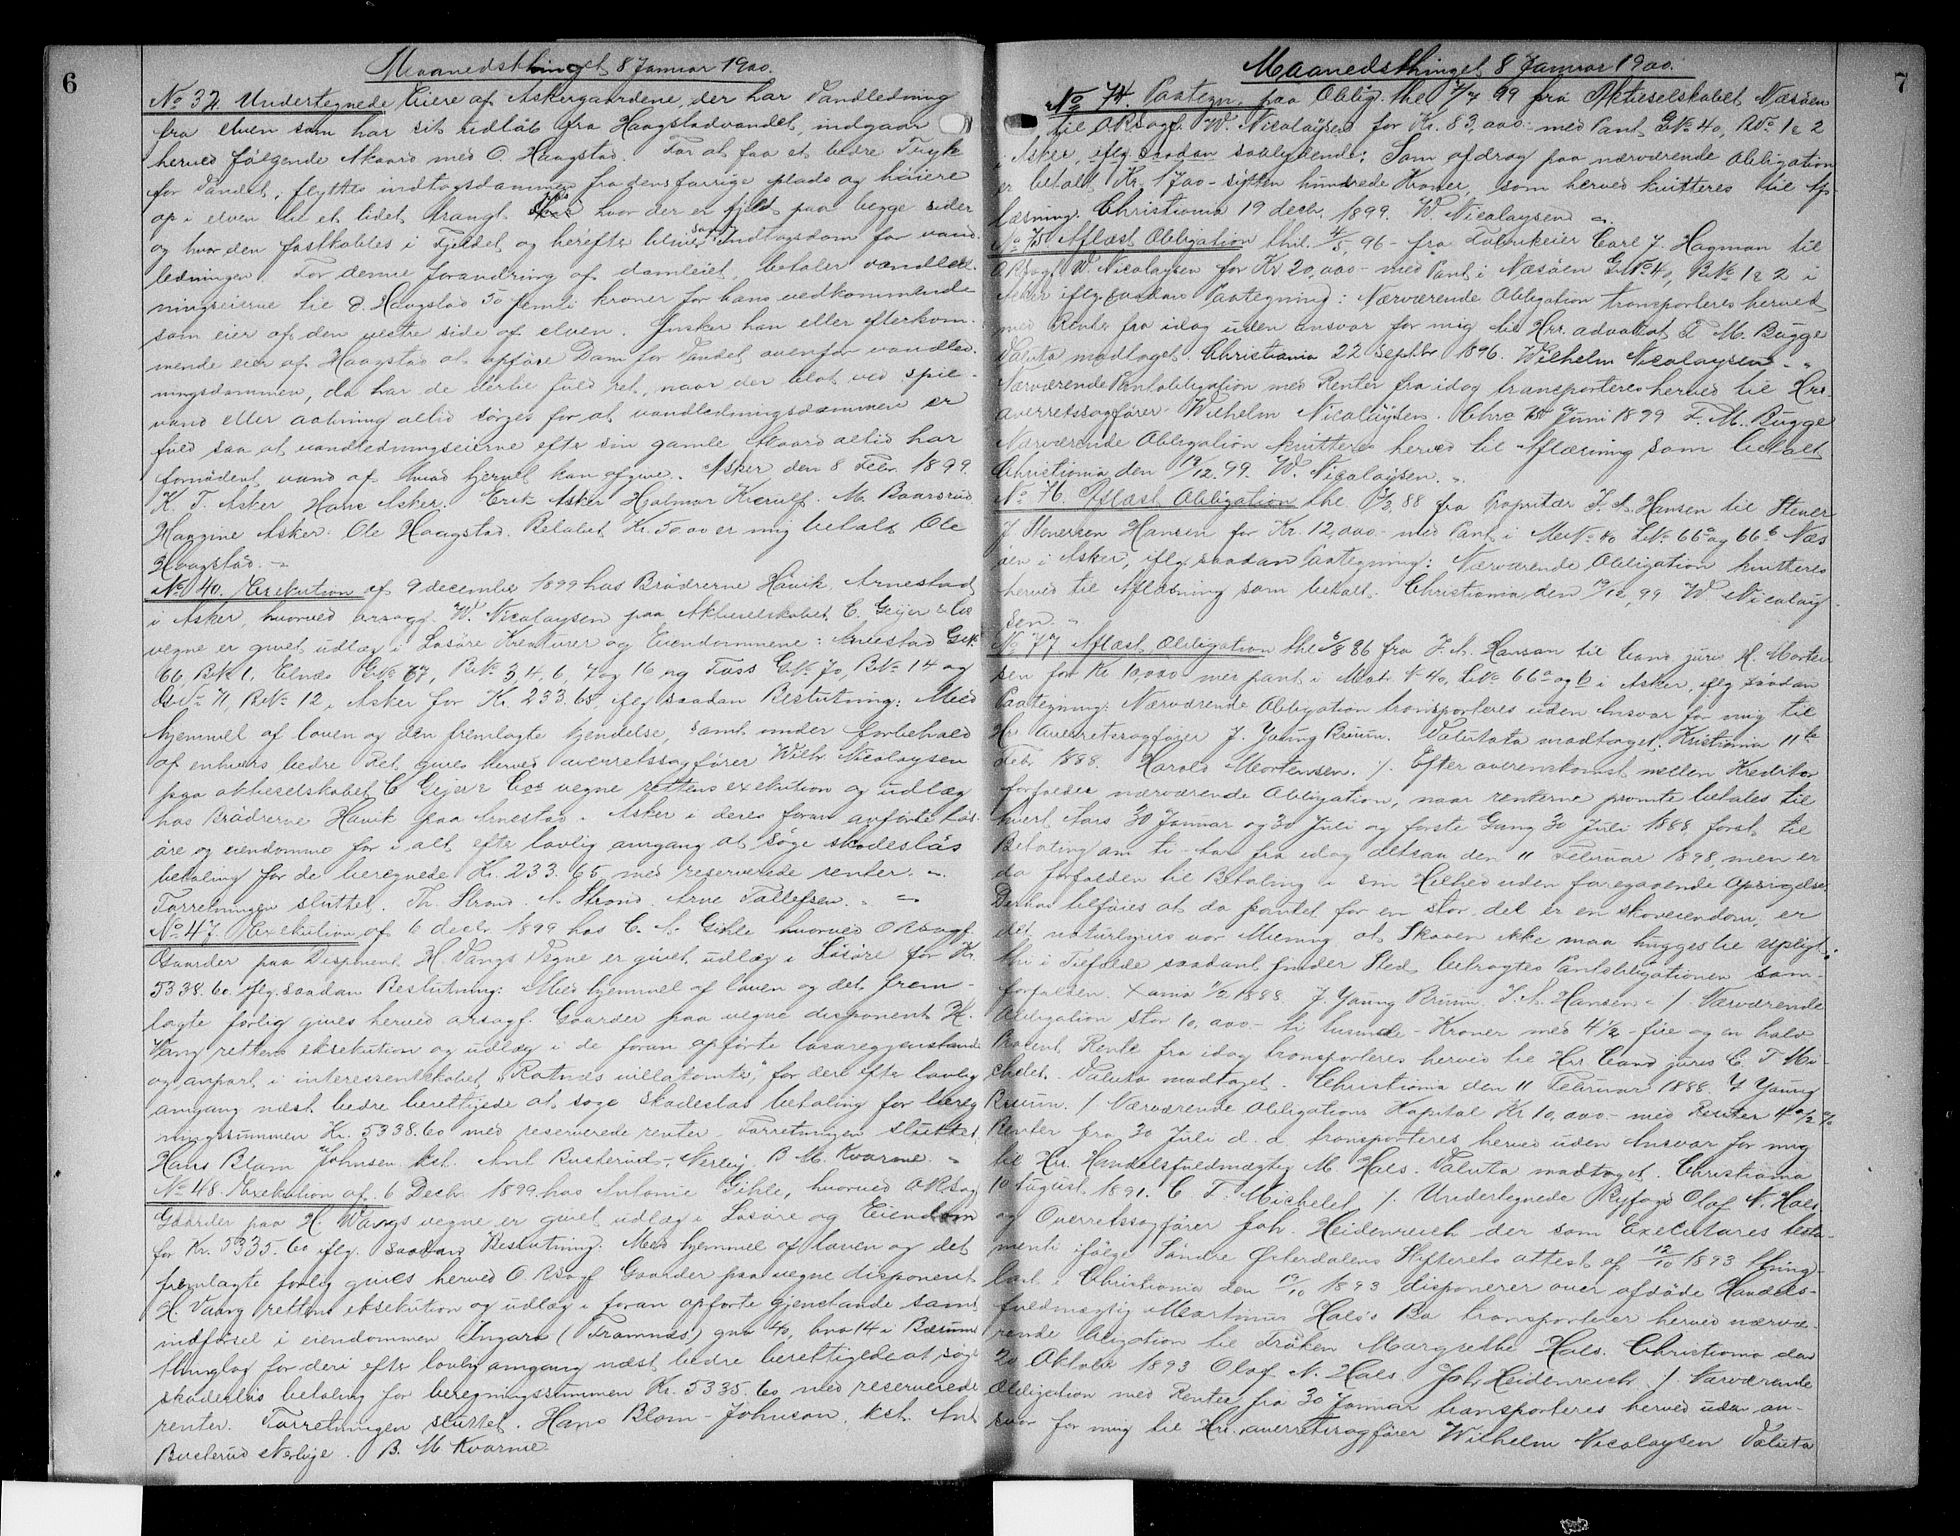 6
Maanedsthinget 8 Januar 1900.
No 32. Undertegnede Eiere af Askergaardene, der har Vandledning
fra elven som har sit udløb fra Haagstadvandet, indgaar
herved følgende Akaard med O. Haagstad. For at faa et bedre Tryk
for Vandet, flyttes indtagsdammen fra dens forrige plads og høiere
op i elven til et lidet trangt hvor der er fjeld paa begge sider
og hvor den fastkobles i Fjeldet og herefter bliver samt Indtagsdam for vand-
ledningen. For denne forandring af damleiet, betaler vandled-
ningseierne til O. Haagstad 50 femti kroner for hans vedkommende
som eier af den vestre side af elven. Ønsker han eller efterkom-
mende eier af Haagstad at opføre Dam for Vandet ovenfor vandled-
ningsdammen, da har de dertil fuld ret, naar der blot ved spil-
vand eller aabning altid sørges for at vandledningsdammen er
fuld saa at vandledningseierne efter sin gamle Akaard altid har
fornødent vand af hvad tjernet kan afgive. Asker den 8 Febr. 1899.
K. T. Asker Hans Asker. Erik Asker Hjalmar Kierulf. M. Baarsrud
Haagine Asker. Ole Haagstad. Beløbet Kr. 50.00 er mig betalt Ole
Haagstad.
No 40. Exekution af 9 december 1899 hos Brødrerne Hauik Arnestad
i Asker, hvorved orsagf. W. Nicolaysen paa Aktieselskabet C. Geijer & Coes
vegne er givet udlæg i Løsøre Kreaturer og Eiendommene: Arnestad GNo
66, BNo 1, Elnæs GNo 67, BNo 3, 4, 6, 7 og 16 og Fuss GNo 70, BNo 14 og
GNo 71, BNo 12, Asker for Kr. 233.65, iflg saadan Beslutning: Med
hjemmel af loven og den fremlagte kjendelse, samt under forbehold
af enhvers bedre Ret gives herved overretssagfører Wilh. Nicolaysen
paa aktieselskabet C Geijer & Coes vegne rettens exekution og udlæg
hos Brødrerne Hauik paa Arnestad i Asker i deres foran anførte Løs-
øre og eiendomme for i alt efter lovlig omgang at søge skadesløs
betaling for de beregnede Kr. 233.65 med reserverede renter.
Forretningen sluttet. Th. Strand. A Strand. Arne Tollefsen.
No 47. Exekution af 6 decbr 1899 hos C. A. Gihle hvorved ORsagf.
Gaarder paa Disponent H. Vangs Vegne er givet udlæg i Løsøre for Kr.
5338.60 iflg. saadan Beslutning: Med hjemmel af loven og det frem-
lagte forlig gives herved orsagf. Gaarder paa vegne disponent H.
Vang rettens eksekution og udlæg i de foran opførte løsøregjenstande
og anpart i interessentskabet "Ratnæs villatomter" for deri efter lovlig
omgang næst bedre berettigede at søge skadesløs betaling for bereg-
ningssummen Kr. 5338.60 med reserverede renter. Forretningen sluttet.
Hans Blom Johnsen kst. Ant Busterud, Nerby. B. M. Kvarme.
No 48. Exekution af 6 Decbr 1899 hos Antonie Gihle, hvorved ORsag
Gaarder paa H Wangs vegne er givet udlæg i Løsøre og Eiendom
for Kr. 5335.60 iflg. saadan Beslutning. Med hjemmel af loven og det
fremlagte forlig gives herved O Rsagf Gaarder paa vegne disponent
H. Vang rettens eksekution og udlæg i foran opførte gjenstande samt
indførsel i eiendommen Ingarø (Framnæs) gno 40, bno 14 i Bærum
thinglag for deri efter lovlig omgang næst bedre berettigede at søge
skadesløs betaling for beregningssummen Kr. 5335.60, med reserverede
renter. Forretningen sluttet. Hans Blom-Johnson kst. Ant
Busterud Nerbye. B. M Kvarme
7
Maanedsthinget 8 Januar 1900.
No 74. Paategn. paa Oblig. thl. 7/7 99 fra Aktieselskabet Næsøen
til ORsagf. W. Nicolaysen for Kr. 83,000- med Pant GNo 40, BNo 1 & 2
i Asker, iflg saadan saalydende: Som afdrag paa nærværende Obligation
er betalt Kr 1700- sytten hundrede Kroner, som herved kvitteres til Af-
læsning. Christiania 19 decbr. 1899. W. Nicolaysen
No 75 Aflæst Obligation thl. 4/5 96 - fra Fabrikeier Carl J. Hagman til
ORsagf. W. Nicolaysen for Kr 20,000- med Pant i Næsøen GNo 40, BNo 1 & 2 i
Asker iflg. saadan Paategning: Nærværende Obligation transporteres herved
med Renter fra idag uden ansvar for mig til Hrr. advokat F. M. Bugge
Valuta modtaget. Christiania 22 Septbr 1896. Wilhelm Nicolaysen.
Nærværende Pantobligation med Renter fra idag transporteres herved til Hrr.
overretssagfører Wilhelm Nicolaysen. Chra 15 Juni 1899 F. M. Bugge
Nærværende Obligation kvitteres herved til Aflæsning som betalt
Christiania den 19/12 99. W. Nicolaysen.
No 76. Aflæst Obligation thl. 88 fra Proprietær J. A. Hansen til Stener
J Stenersen Hansen for Kr. 12,000- med Pant i MNo 40 LNo 66a og 66b Næs-
øen i Asker, iflg saadan Paategning: Nærværende Obligation kvitteres
herved til Aflæsning som betalt. Christiania den 19/12, 99 W. Nicolay-
sen.
No 77 Aflæst Obligation thl 6/8 86 fra J. A. Hansen til Cand. juris H. Morten-
sen for Kr 10,000 med pant i Matr. No 40, LNo 66a og b i Asker, iflg saadan
Paategning: Nærværende Obligation transporteres uden Ansvar for mig til
Hr overretssagfører J. Young Bruun. Valuta modtaget. Kristiania 11te
Febr 1888. Harald Mortensen. / Efter overenskomst mellem Kreditor
forfalder nærværende Obligation, naar renterne promte betales til
hvert Aars 30 Januar og 30 Juli og første Gang 30 Juli 1888 først til
Betaling om ti - aar fra idag altsaa den 11 Februar 1898, men er
da forfalden til Betaling i sin Helhed uden foregaaende Opsigelse.
Derhos tilføies at da pantet for en stor del er en skoveiendom, er
det naturligvis vor Mening at Skoven ikke maa hugges til Upligt-
thi i Tilfælde saadant finder Sted betragtes Pantobligationen som
forfalden. Xania 11/2 1888. J. Young Bruun. J. A. Hansen. / Nærværende
Obligation stor 10,000- ti tusinde - Kroner med 4 1/2 - fire og en halv
Procent Rente fra idag transporteres herved til Hrr. Cand juris C. F. Mi-
chelet. Valuta modtaget. Christiania den 11 Februar 1888. J Young
Bruun. / Nærværende Obligations Kapital Kr 10,000- med Renter 4 1/2 %
Renter fra 30 Juli d. a. transporteres herved uden Ansvar for mig
til Hr. Handelsfuldmægtig M. Hals. Valuta modtaget. Christiania
10 August 1891. C. F. Michelet / Undertegnede Byfogd Olaf N. Hals
og Overretssagfører Joh. Heidenreich der som Executores testa-
menti ifølge Søndre Østerdalens Skifterets attest af 12/10 1893 thing-
læst i Christiania den 19/10 1893 disponerer over afdøde Handels-
fuldmægtig Martinus Hals's Bo transporterer herved nærvæ-
rende Obligation til Frøken Margrethe Hals. Christiania den
20 Oktober 1893 Olaf N. Hals. Joh Heidenreich. / Nærværende
Obligation med Renter fra 30 Januar transporteres herved uden an-
svar for mig til Hrr. overretssagfører Wilhelm Nicolaysen Valuta